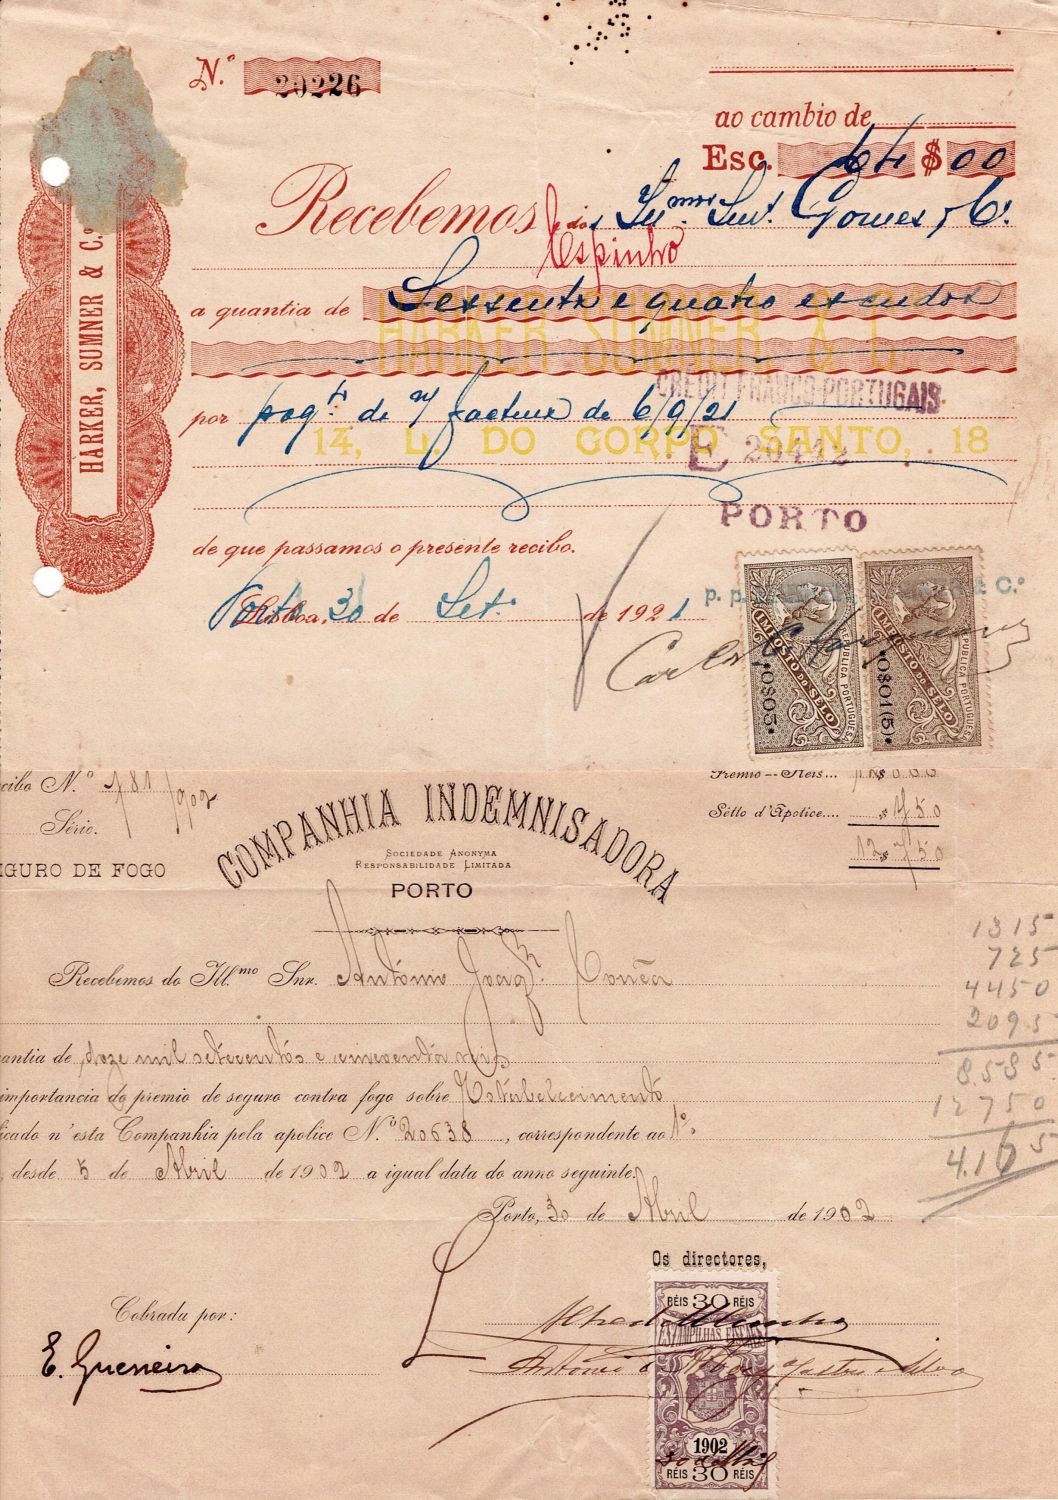 N.º 20226
ao cambio de
Esc. 64 $ 00
Recebemos dos Snrs. Gomes, & C.ª
Espinho
a quantia de Sessenta e quatro escudos
HARKER SUMNER & C.
CREDIT FRANCO-PORTUGAIS
por pag.to de n/ factura de 6/9/21
14, L. DO CORPO SANTO, 18
E
PORTO
de que passamos o presente recibo.
Porto Lisboa, 30 de Set. de 1921
p. p. C.º
HARKER, SUMNER & C.º
IMPOSTO DO SELO
REPUBLICA PORTUGUESA
0$05
IMPOSTO DO SELO
REPUBLICA PORTUGUESA
0$01(5)
cibo N.º 781/902
Premio--Reis...
Série.
Sêllo d'Apolice.... $ 750
12 $ 750
COMPANHIA INDEMNISADORA
GURO DE FOGO
SOCIEDADE ANONYMA
RESPONSABILIDADE LIMITADA
PORTO
Recebemos do Ill.mo Snr. António Joaq.m
antia de doze mil setecentos e cincoenta reis
importancia do premio de seguro contra fogo sobre Estabelecimento
icado n'esta Companhia pela apolice N.º 20638, correspondente ao 1º.
, desde 5 de Abril de 1902 a igual data do anno seguinte.
Porto, 30 de Abril de 1902
1315
725
4450
2095
8.585
12750
4.165
Os directores,
Cobrada por:
E. Guerreiro
RÉIS 30 RÉIS
ESTAMPILHAS FISCAES
1902
30 de Abril
RÉIS 30 RÉIS